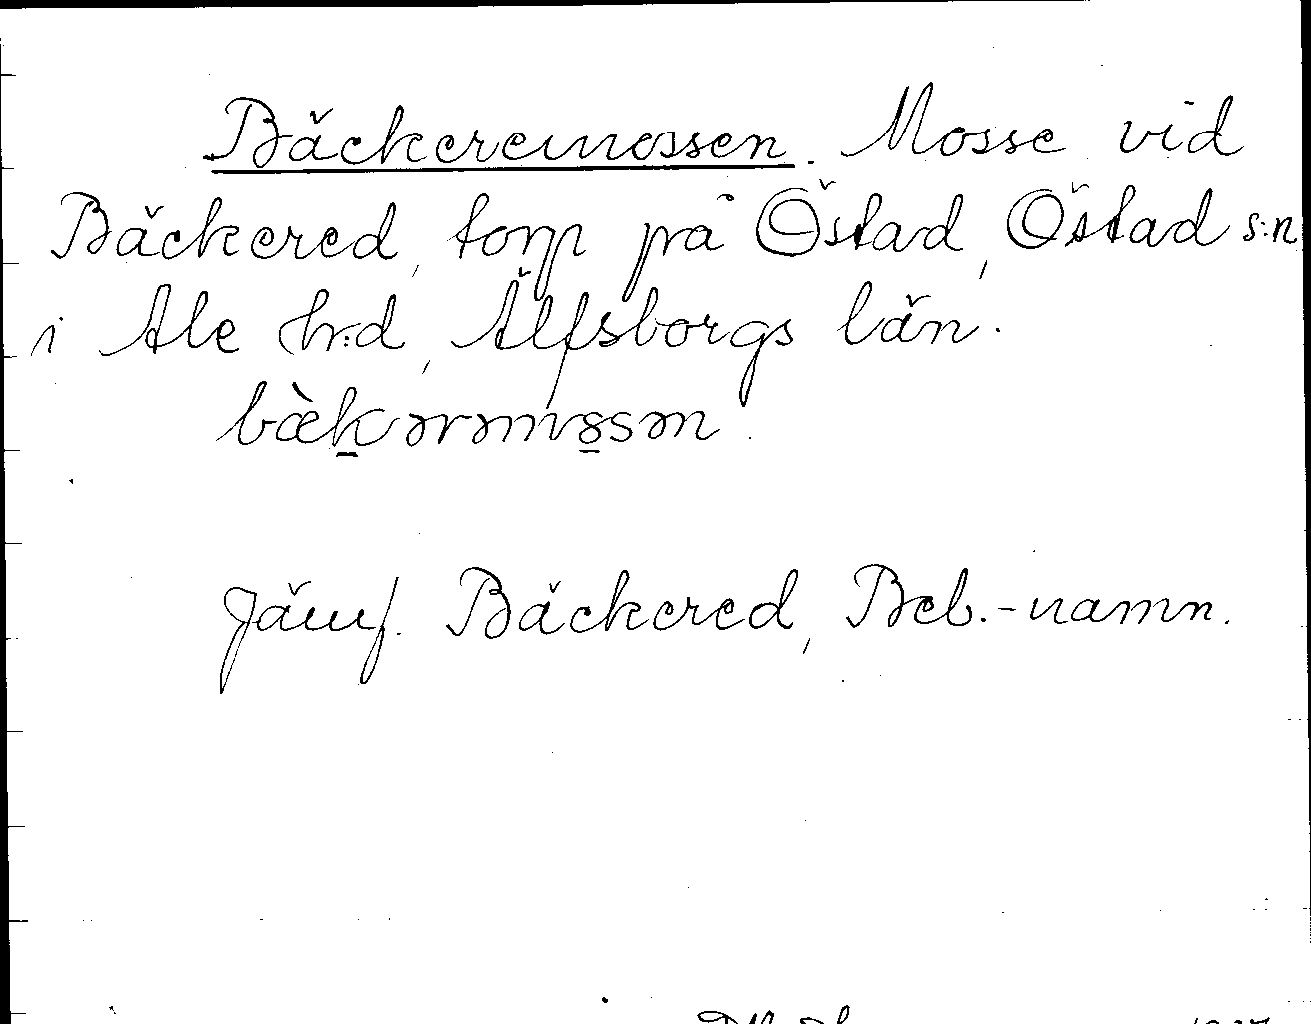 Bäckeremossen. Mosse vid
Bäckered, torp på Östad, Östad s:n
i Ale h:d, Älfsborgs län.
bæ̀ḵərəmo̱ssən.
Jämf. Bäckered, Beb.-namn.